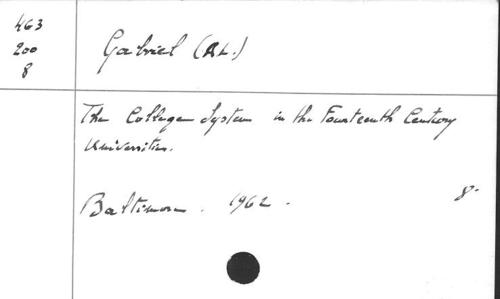 463
200
8
Gabriel (A.L.)
The College System in the Fourteenth Century
Universities.
Baltimore. 1962. 8°